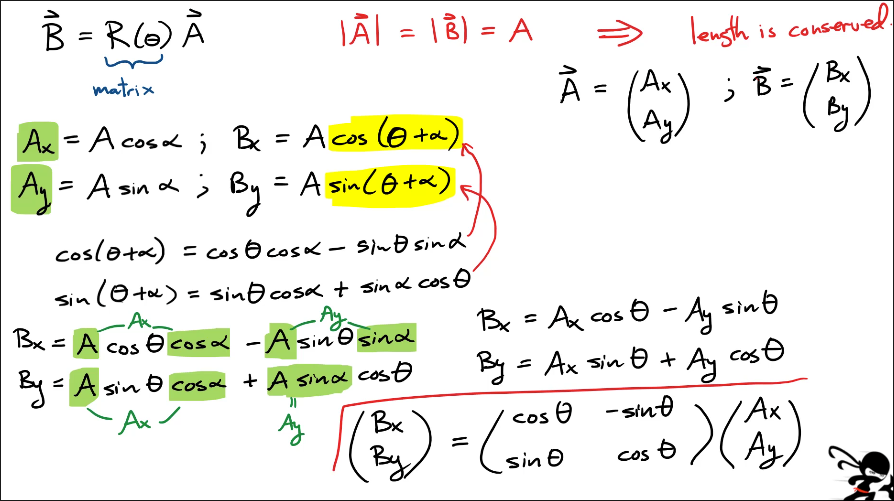 B⃗ = R(θ) A⃗
matrix
|A⃗| = |B⃗| = A ⇒ length is conserved.
A⃗ = (Ax Ay) ; B⃗ = (Bx By)
Ax = A cosα ; Bx = A cos(θ+α)
Ay = A sinα ; By = A sin(θ+α)
cos(θ+α) = cosθ cosα − sinθ sinα
sin(θ+α) = sinθ cosα + sinα cosθ
Ax Ay
Bx = A cosθ cosα − A sinθ sinα
By = A sinθ cosα + A sinα cosθ
Ax Ay
Bx = Ax cosθ − Ay sinθ
By = Ax sinθ + Ay cosθ
(Bx By) = (cosθ −sinθ sinθ cosθ)(Ax Ay)